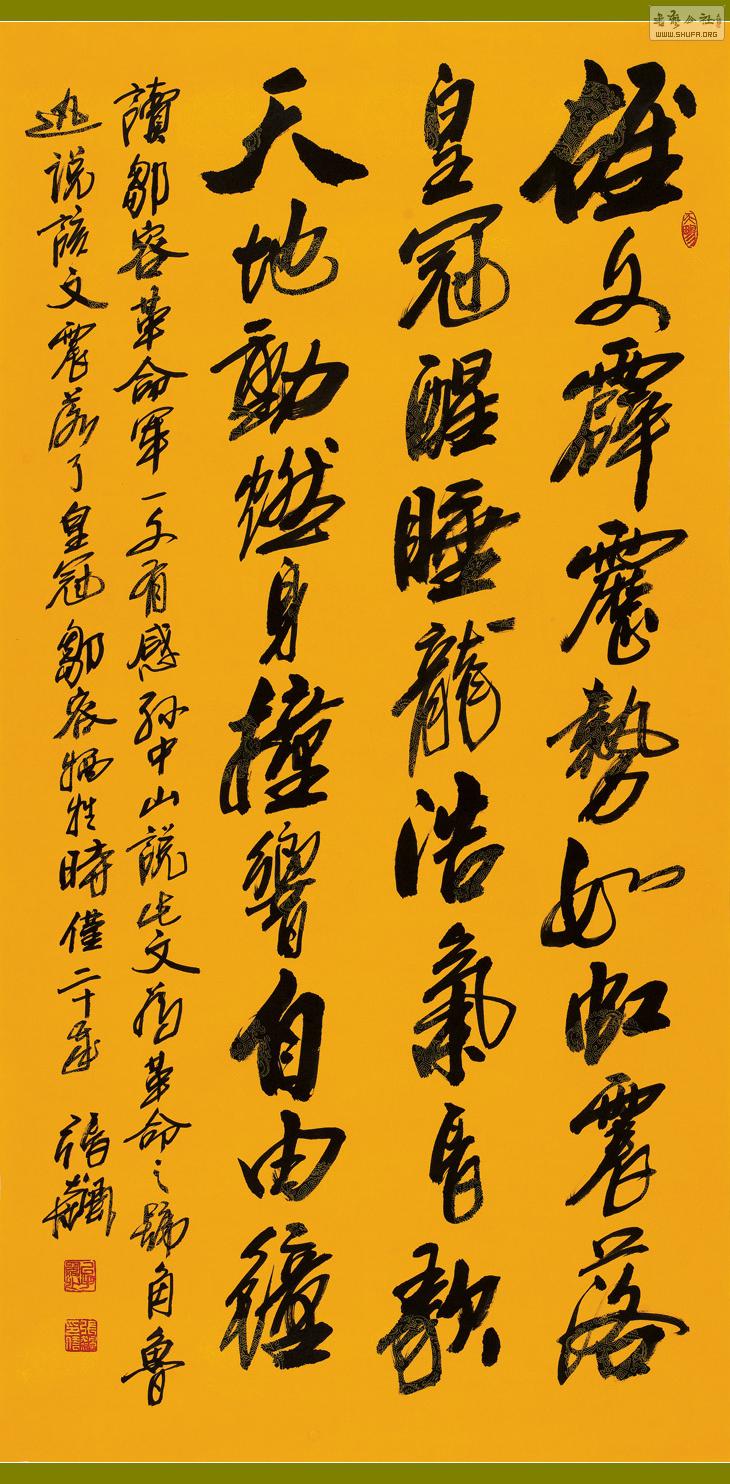 雄文霹靂勢如虹震落
皇冠醒睡龍浩氣長歌
天地動燃身撞響自由鐘
讀鄒容革命軍一文有感孫中山說此文為革命之號角魯
迅說該文震落了皇冠鄒容犧牲時僅二十歲
書藝公社
WWW.SHUFA.ORG